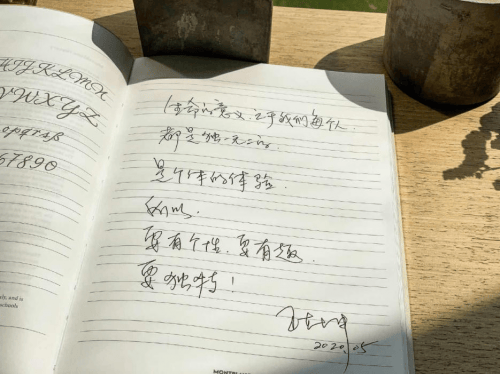 HIJKLMN
VWXYZ
opqrsß
67890
生命的意义之于我们每个人,
都是独一无二的,
是个体的体验.
所以,
要有个性,要有趣,
要独特!
2020.05